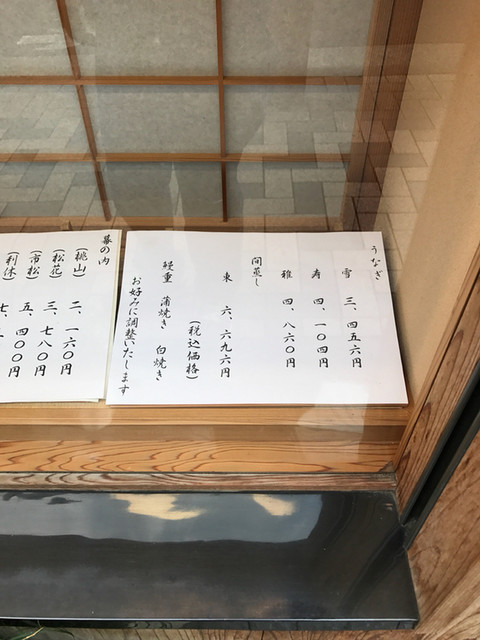 うなぎ
雪 三、四五六円
寿 四、一〇四円
雅 四、八六〇円
間蒸し
東 六、六九六円
(税込価格)
鰻重 蒲焼き 白焼き
お好みに調整いたします
幕の内
(桃山) 二、一六〇円
(松花) 三、七八〇円
(市松) 五、四〇〇円
(利休) 七、